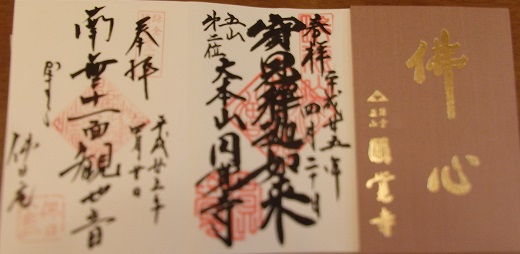 佛心
圓覺寺
奉拝
平成廿五年
四月二十日
寳冠釋迦如来
五山
第二位
大本山円覚寺
奉拝
平成廿五年
四月廿日
南無十一面観世音
佛日庵